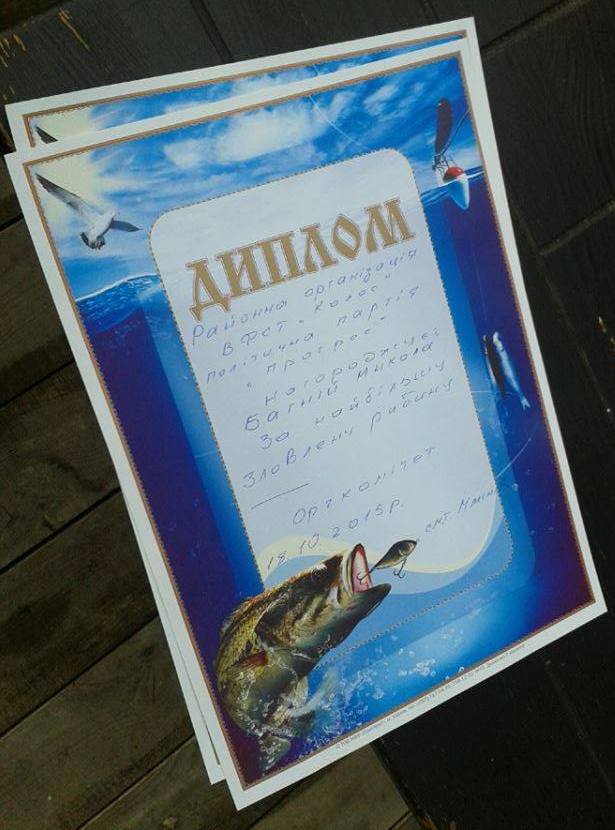 ДИПЛОМ
Районна організація
ВФСТ "Колос"
політична партія
"Прогрес"
нагороджує:
Багній Микола
За найбільшу
Зловлену рибину
Оргкомітет.
18.10.2015р. смт.